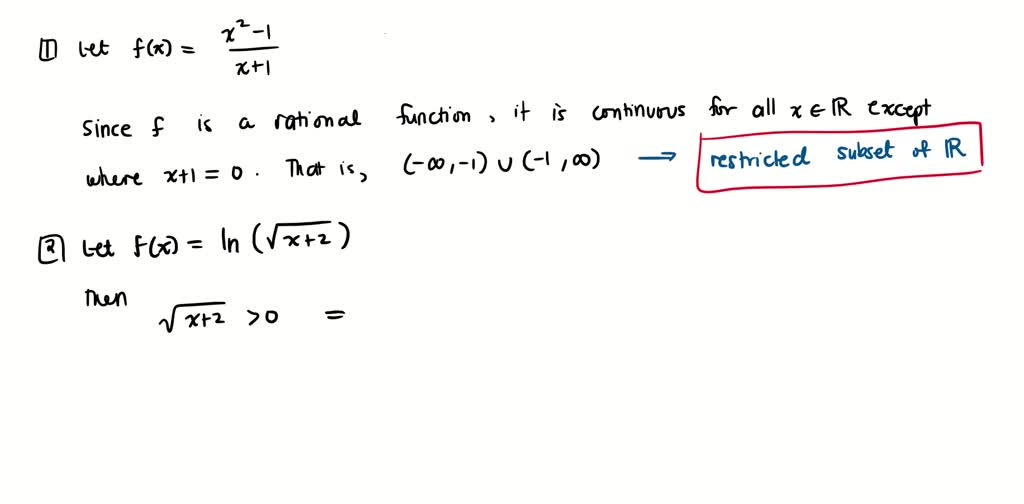 1 Let f(x) = (x² - 1)/(x+1)
Since f is a rational function, it is continuous for all x ∈ ℝ except
where x+1 = 0. That is, (-∞, -1) ∪ (-1, ∞) → restricted subset of ℝ
2 Let f(x) = ln (√(x+2))
Then
√(x+2) > 0 =